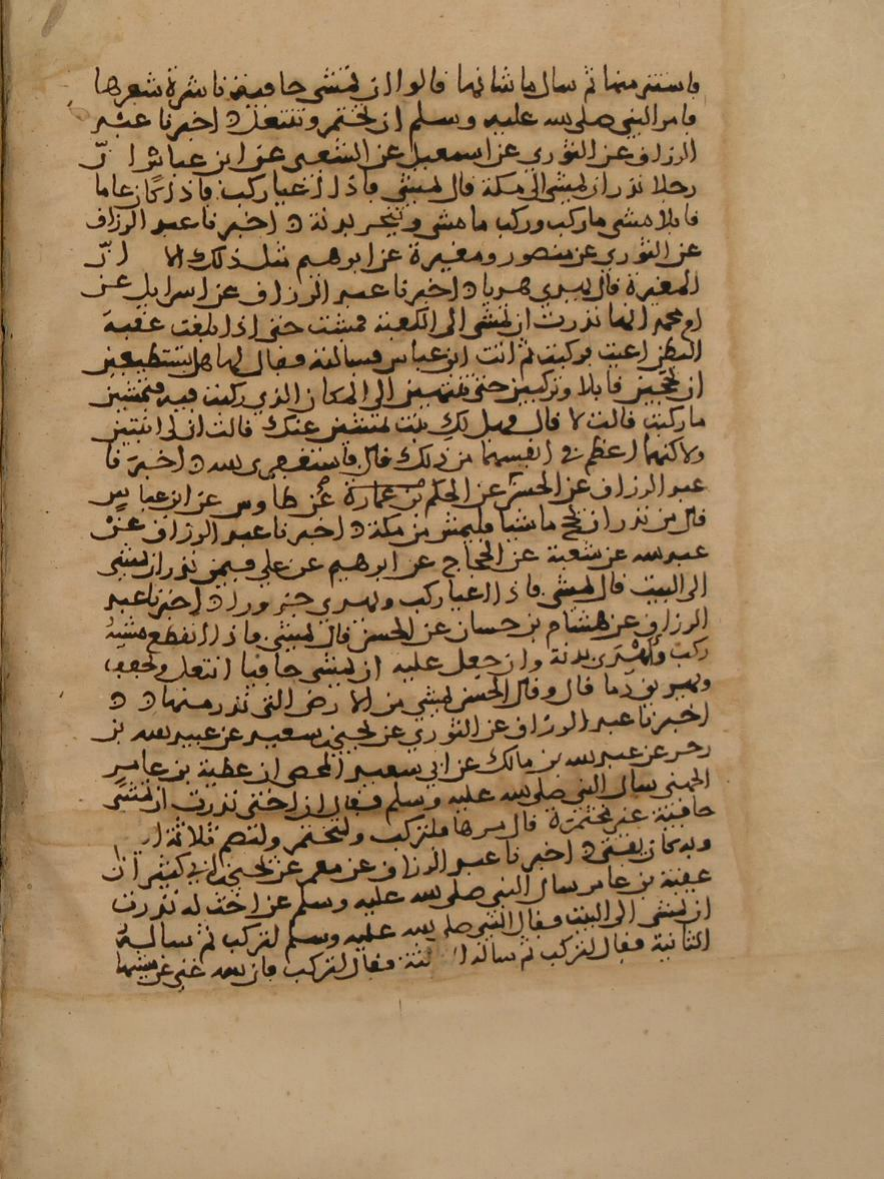 فاستتر منها ثم سال ما شانها قالوا نذرت ان تمشي حافية ناشرة شعرها
فامر النبي صلى الله عليه وسلم ان تختمر وتنتعل ه اخبرنا عبد
الرزاق عن الثوري عن اسمعيل عن الشعبي عن ابن عباس ان
رجلا نذر ان يمشي الى مكة قال يمشي فاذا اعيا ركب فاذا كان عاما
قابلا مشى ما ركب وركب ما مشى وينحر بدنة ه اخبرنا عبد الرزاق
عن الثوري عن منصور ومغيرة عن ابرهيم مثل ذلك الا ان
المغيرة قال يهدي هديا ه اخبرنا عبد الرزاق عن اسرايل عن
ام محبة انها نذرت ان تمشي الى الكعبة فمشت حتى اذا بلغت عقبة
البطن اعيت فركبت ثم اتت ابن عباس فسالته فقال لها هل تستطيعين
ان تحجين قابلا وتركبين حتى تنتهين الى المكان الذي ركبت فيه فتمشين
ما ركبت قالت لا قال فهل لك بنت تمشي عنك قالت ان لي ابنتين
ولاكنهما اعظم في انفسهما من ذلك قال فاستغفري الله ه اخبرنا
عبد الرزاق عن الحسن عن الحكم بن عمارة عن طاوس عن ابن عباس
قال من نذر ان يحج ماشيا فليمش من مكة ه اخبرنا عبد الرزاق عن
عبد الله عن شعبة عن الحجاج عن ابرهيم عن علي فيمن نذر ان يمشي
الى البيت قال يمشي فاذا اعيا ركب ويهدي جزورا ه اخبرنا عبد
الرزاق عن هشام بن حسان عن الحسن قال يمشي فاذا انقطع مشيه
ركب واهدى بدنة وان جعل عليه ان يمشي حافيا انتعل وتخفف
ويهريق دما قال وقال الحسن يمشي من الارض التي نذر منها ه ه
اخبرنا عبد الرزاق عن الثوري عن يحيى بن سعيد عن عبيد الله بن
زحر عن عبد الله بن مالك عن ابي سعيد اليحصبي ان عقبة بن عامر
الجهني سال النبي صلى الله عليه وسلم فقال ان اختي نذرت ان تمشي
حافية غير مختمرة قال مرها فلتركب ولتختمر ولتصم ثلاثة ايام
وبه كان يفتي ه اخبرنا عبد الرزاق عن معمر عن يحيى بن ابي كثير ان
عقبة بن عامر سال النبي صلى الله عليه وسلم عن اخت له نذرت
ان تمشي الى البيت فقال النبي صلى الله عليه وسلم لتركب ثم ساله
الثانية فقال لتركب ثم ساله الثالثة فقال لتركب فان الله غني عن مشيها